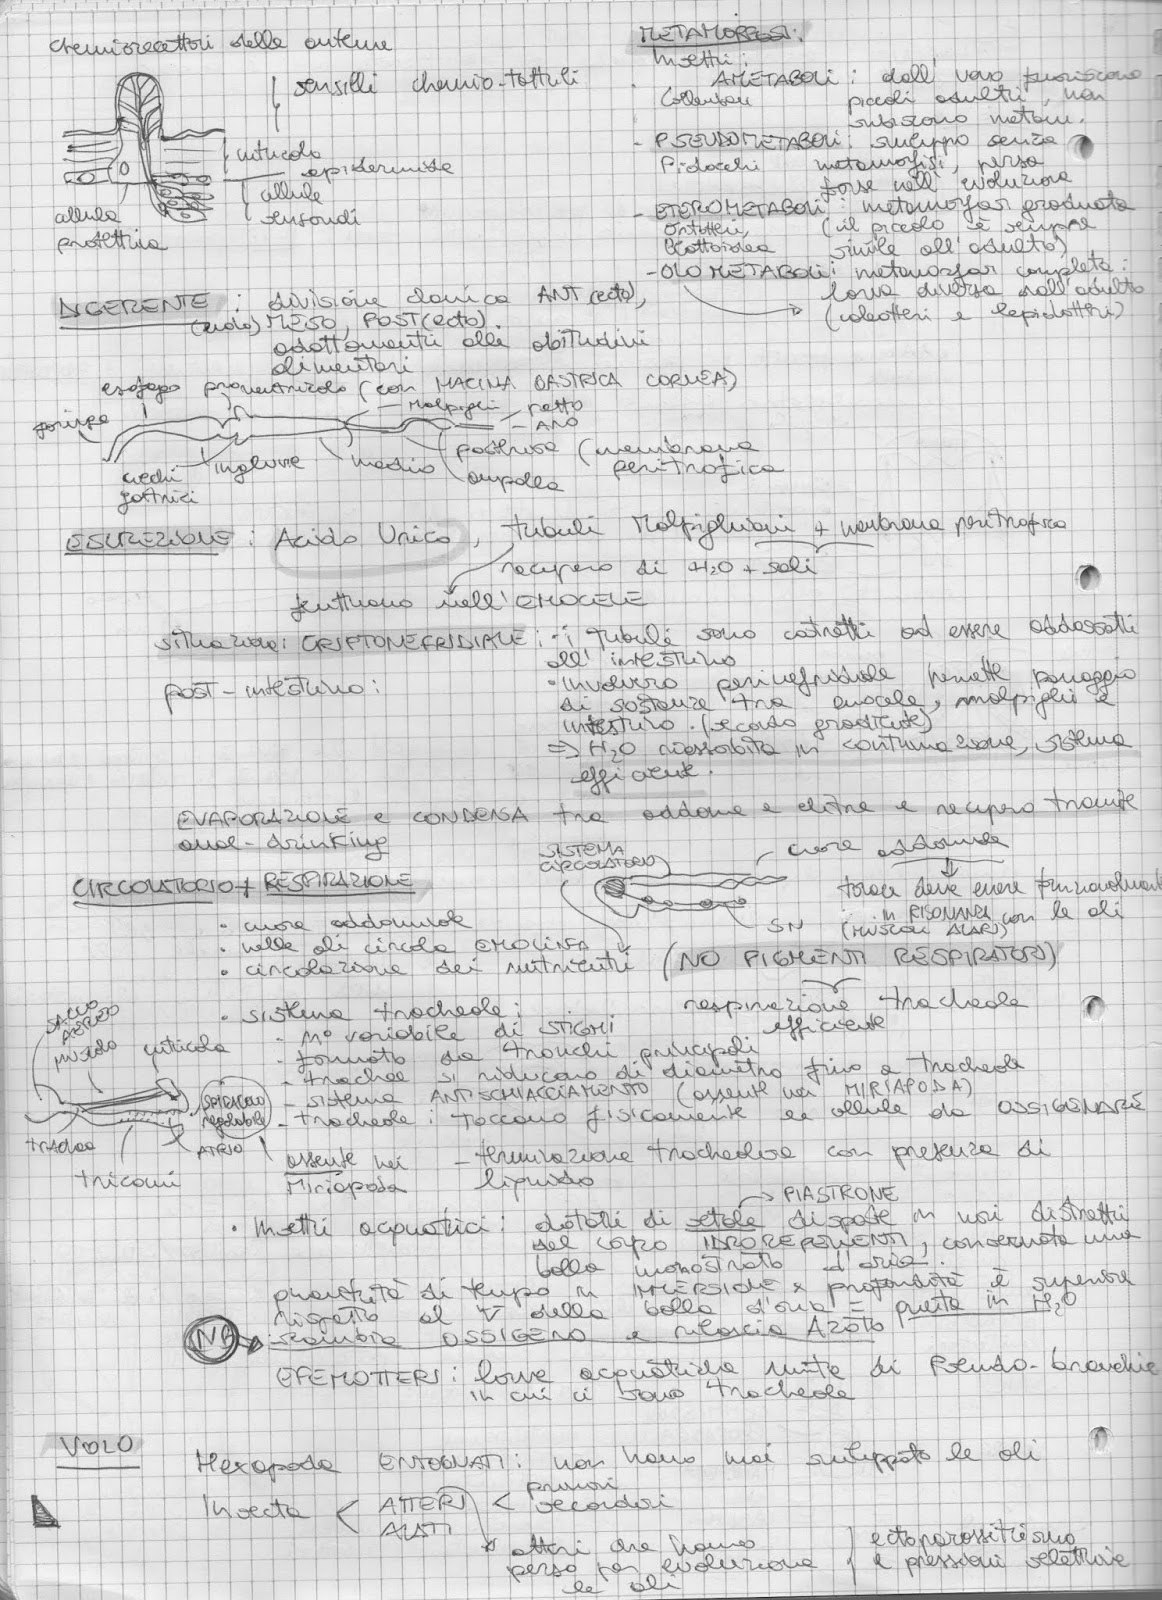 chemiorecettori delle antenne
sensilli chemio-tattili
cuticola
epidermide
cellule
sensoriali
cellula
protettiva
METAMORFOSI:
Insetti:
AMETABOLI: dall'uovo fuoriescono
Collemboli piccoli adulti, non
subiscono metam.
- PSEUDOMETABOLI: sviluppo senza
Pidocchi metamorfosi, persa
forse nell'evoluzione
- ETEROMETABOLI: metamorfosi graduata
(il piccolo è sempre
Blattoidea simile all'adulto)
- OLOMETABOLI: metamorfosi completa:
larva diversa dall'adulto
(coleotteri e lepidotteri)
DIGERENTE: divisione classica ANT (ecto),
(endo) MESO, POST (ecto).
adattamenti alle abitudini
alimentari
esofago proventricolo (con MACINA GASTRICA CORNEA)
faringe
Malpighi
retto
ANO
ciechi
gastrici
ingluvie
medio
posteriore (membrana
peritrofica
ampolla
ESCREZIONE: Acido Urico, tubuli Malpighiani + membrana peritrofica
recupero di H2O + sali
fluttuano nell'EMOCELE
situazione: CRIPTONEFRIDIALE: · i tubuli sono costretti ad essere addossati
all'intestino
post-intestino:
· Involucro perinefridiale permette passaggio
di sostanze tra emocele, malpighi e
intestino. (secondo gradiente)
=> H2O riassorbita in continuazione, sistema
efficiente.
EVAPORAZIONE e CONDENSA tra addome e elitre e recupero tramite
anal-drinking
SISTEMA
CIRCOLATORIO
cuore addominale
CIRCOLATORIO + RESPIRAZIONE
torace deve essere funzionalmente
in RISONANZA con le ali
(MUSCOLI ALARI)
SN
· cuore addominale
· nelle ali circola EMOLINFA
· circolazione dei nutrienti (NO PIGMENTI RESPIRATORI)
respirazione tracheale
efficiente
· sistema tracheale:
- n° variabile di STIGMI
- formato da tronchi principali
- trachee si riducono di diametro fino a tracheole
- sistema ANTISCHIACCIAMENTO (assente nei MIRIAPODA)
- tracheole: toccano fisicamente le cellule da OSSIGENARE
- terminazione tracheolare con presenza di
liquido
SACCO
AEREO
muscolo
cuticola
spiracolo
regolabile
trachea
ATRIO
tricomi
assente nei
Miriapoda
· Insetti acquatici: dotati di setole disposte in vari distretti
PIASTRONE
del corpo IDROREPELLENTI, conservata una
bolla monostrato d'aria.
quantità di tempo in IMMERSIONE x profondità è superiore
rispetto al V della bolla d'aria = presta in H2O
NB scambia OSSIGENO e rilascia AZOTO
EFEMOTTERI: larve acquatiche munite di Pseudo-branchie
in cui ci sono tracheole
VOLO
Hexapoda ENTOGNATI: non hanno mai sviluppato le ali
Insecta < ATTERI < primari
secondari
ALATI
atteri che hanno
perso per evoluzione
le ali
ectoparassitismo
e pressioni selettive